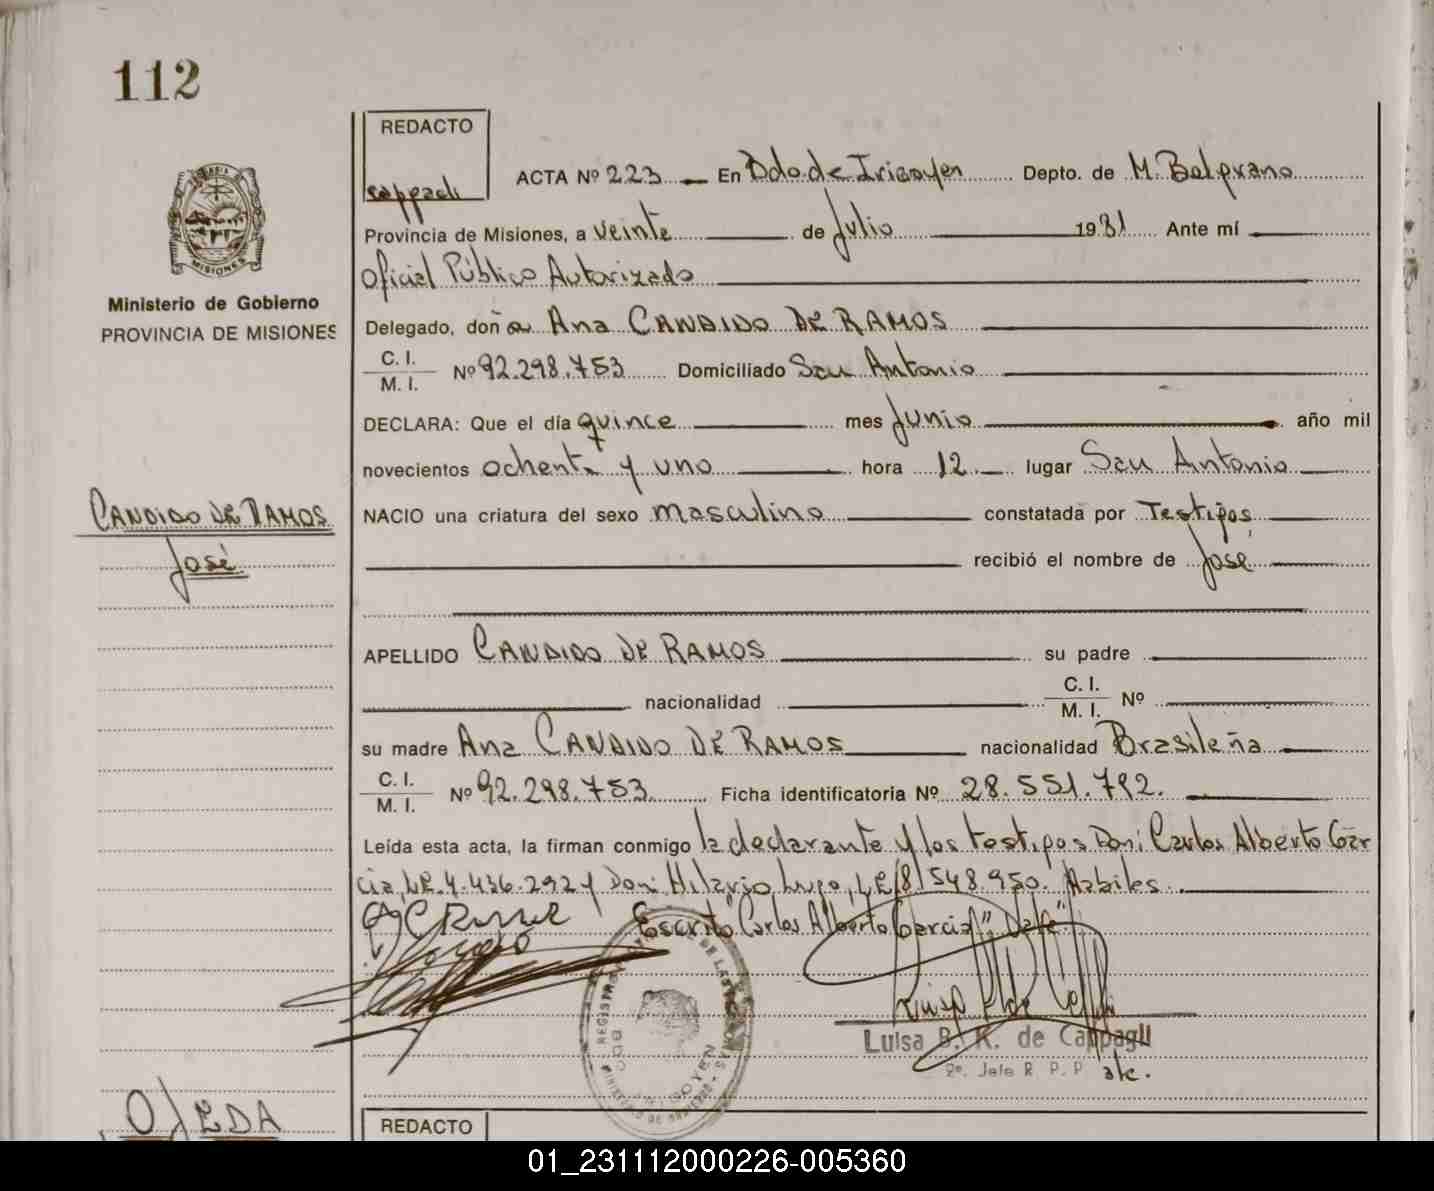 112
REDACTO
cappagli
ACTA Nº 223 En Bdo. de Irigoyen Depto. de M. Belgrano
MISIONES
Ministerio de Gobierno
PROVINCIA DE MISIONES
Provincia de Misiones, a veinte de Julio 1981 Ante mí
Oficial Público Autorizado
Delegado, doña Ana CANDIDO DE RAMOS
C. I.
M. I. Nº 92.298.753 Domiciliado San Antonio
DECLARA: Que el día quince mes Junio año mil
novecientos ochenta y uno hora 12 lugar San Antonio
CANDIDO DE RAMOS
José
NACIO una criatura del sexo masculino constatada por Testigos
recibió el nombre de José
APELLIDO CANDIDO DE RAMOS su padre
nacionalidad C. I.
M. I. Nº
su madre Ana CANDIDO DE RAMOS nacionalidad Brasileña
C. I.
M. I. Nº 92.298.753 Ficha identificatoria Nº 28.551.792.
Leída esta acta, la firman conmigo la declarante y los testigos Don: Carlos Alberto Gar
cia, LE. 4.436.292 y Don: Hilario Lugo, LE 8.548.950. Habiles.
Escrito "Carlos Alberto Garcia", Vale"
Luisa B. K. de Cappagli
2º. Jefe R. P. P.
OJEDA
REDACTO
01_231112000226-005360